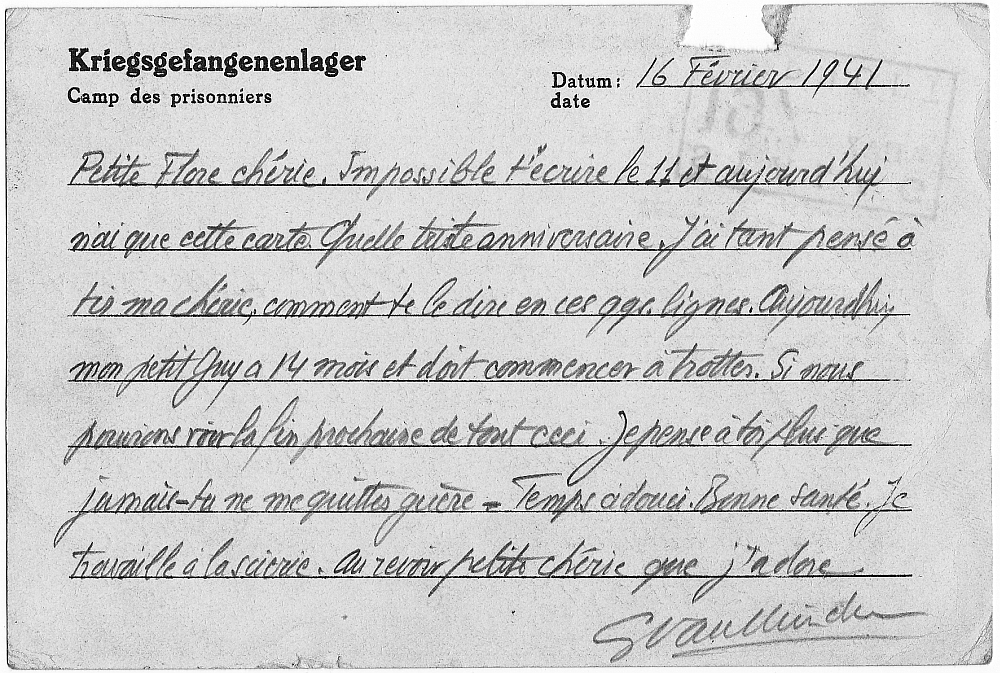 Kriegsgefangenenlager
Camp des prisonniers
Datum: 16 Février 1941
date
Petite Flore chérie. Impossible t'écrire le 11 et aujourd'huy
n'ai que cette carte. Quelle triste anniversaire. J'ai tant pensé à
toi ma chérie, comment te le dire en ces qqs. lignes. Aujourdhuy
mon petit Guy a 14 mois et doit commencer à trotter. Si nous
pouvions voir la fin prochaine de tout ceci. Je pense à toi plus que
jamais - tu ne me quittes guière - Temps adouci. Bonne santé. Je
travaille à la scierie. Au revoir petite chérie que j'adore